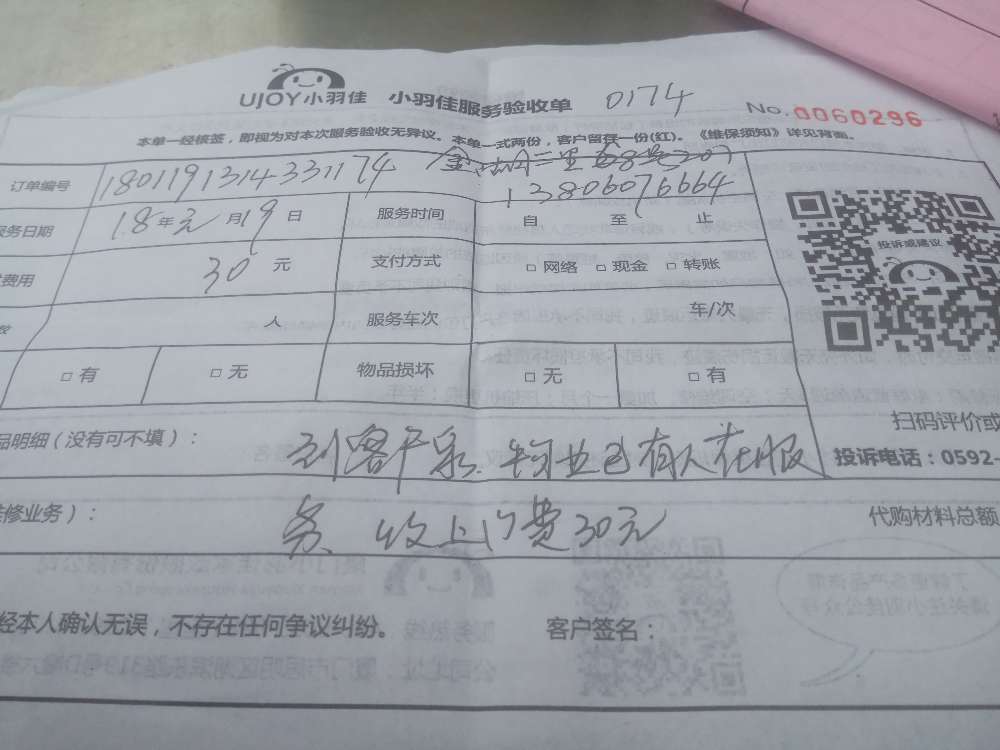 UJOY小羽佳 小羽佳服务验收单 0174
No.0060296
本单一经核签，即视为对本次服务验收无异议。本单一式两份，客户留存一份(红)。《维保须知》详见背面。
订单编号 180119131433174
13806076664
服务日期 18年元月19日 服务时间 自 至 止
费用 30元 支付方式 □网络 □现金 □转账
投诉或建议
人 服务车次 车/次
□有 □无 物品损坏 □无 □有
扫码评价或
品明细（没有可不填）： 物业已有人在服
投诉电话：0592-
修业务）： 务 收上门费30元
代购材料总额
经本人确认无误，不存在任何争议纠纷。 客户签名：